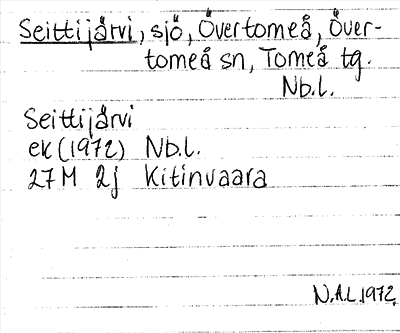 Seittijärvi, sjö, Övertorneå, Över-
torneå sn, Torneå tg.
Nb.l.
Seittijärvi
ek (1972) Nb.l.
27M 2j Kitinvaara
N.Å.L. 1972.